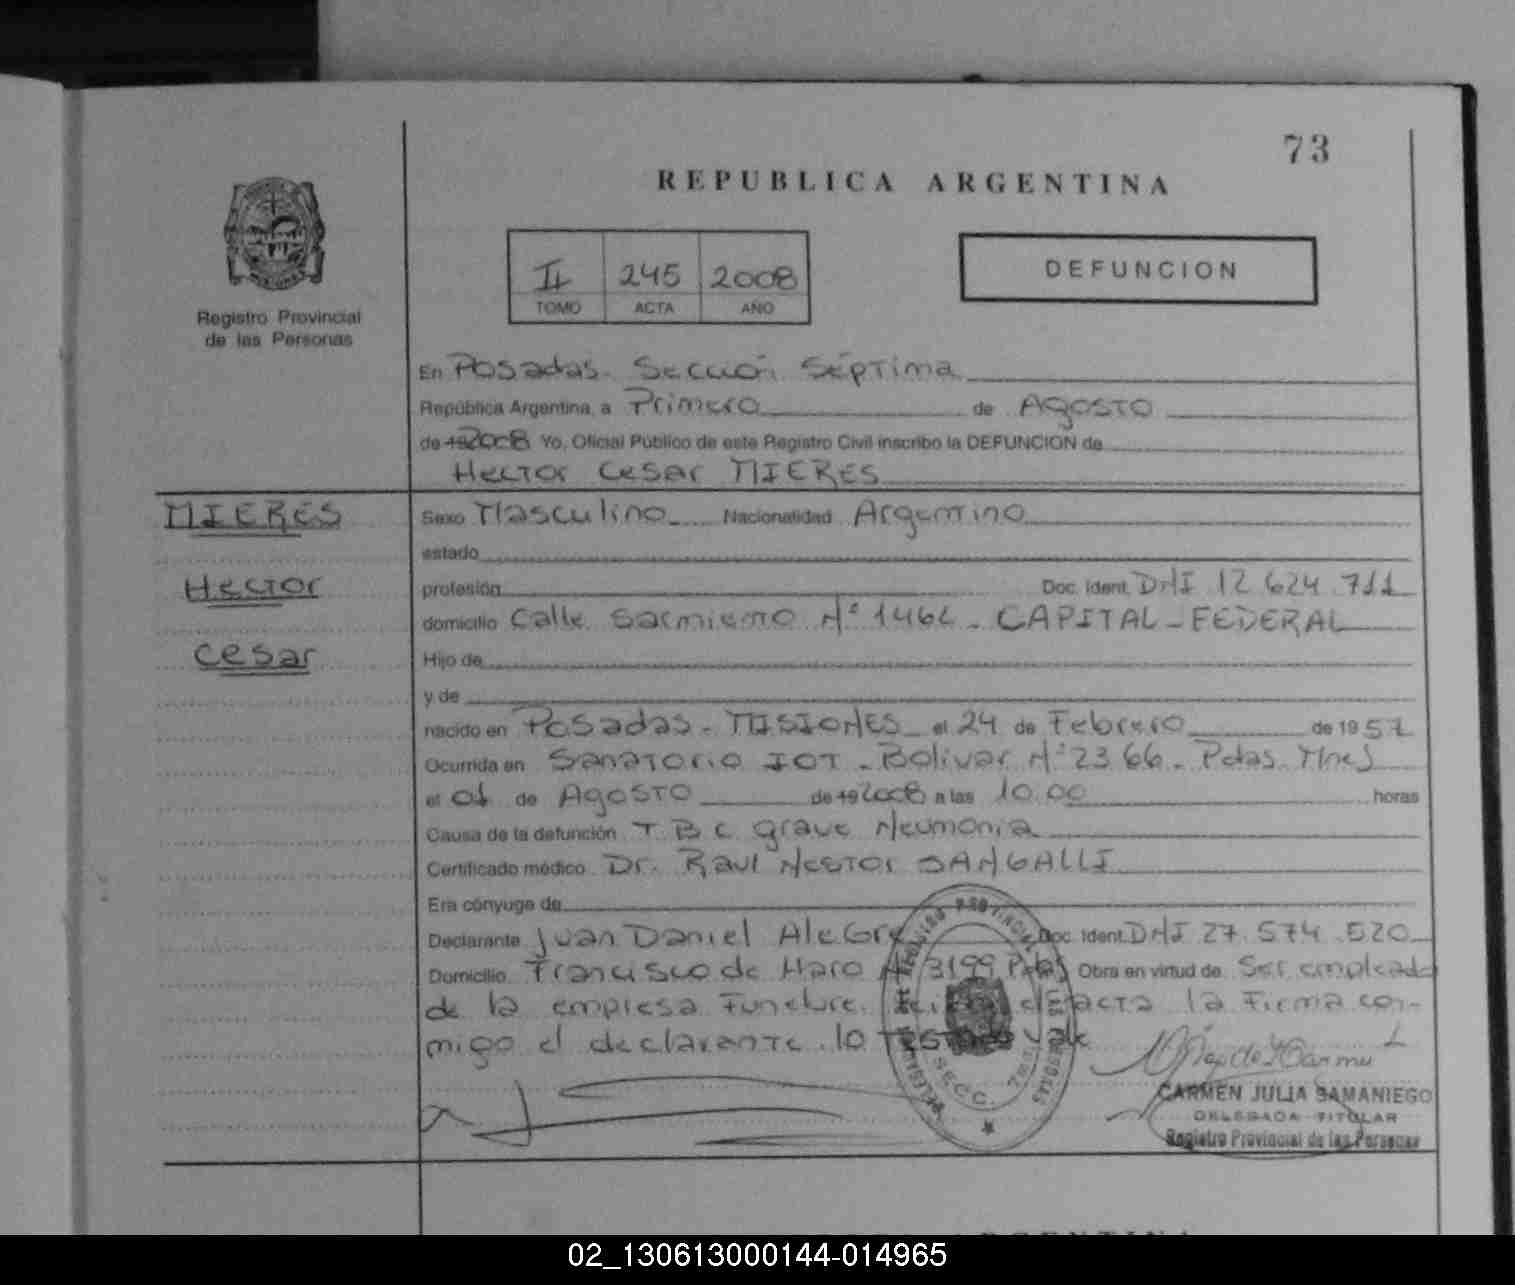 73
REPUBLICA ARGENTINA
II 245 2008
TOMO ACTA AÑO
DEFUNCION
Registro Provincial
de las Personas
En Posadas. Sección Séptima
República Argentina, a Primero de Agosto
de 19 2008 Yo, Oficial Público de este Registro Civil inscribo la DEFUNCION de
Hector Cesar MIERES
MIERES
Hector
Cesar
Sexo Masculino Nacionalidad Argentino
estado
profesión Doc. Ident. DNI 12.624.711
domicilio Calle Sarmiento N° 1464 - CAPITAL - FEDERAL
Hijo de
y de
nacido en Posadas - MISIONES el 24 de Febrero de 1957
Ocurrida en Sanatorio IOT - Bolivar N° 2366 - Pdas. Mnes
el 01 de Agosto de 19 2008 a las 10.00 horas
Causa de la defunción T B C grave Neumonia
Certificado médico Dr. Raul Nestor SANGALLI
Era cónyuge de
Declarante Juan Daniel Alegre Doc. Ident. DNI 27.574.520
Domicilio Francisco de Haro N° 3199 Pdas Obra en virtud de Ser empleado
de la empresa Funebre. el acta la Firma con-
migo el declarante. lo vale
REGISTRO PROVINCIAL DE LAS PERSONAS
SECC. 7ma.
CARMEN JULIA SAMANIEGO
DELEGADA TITULAR
Registro Provincial de las Personas
ARGENTINA
02_130613000144-014965